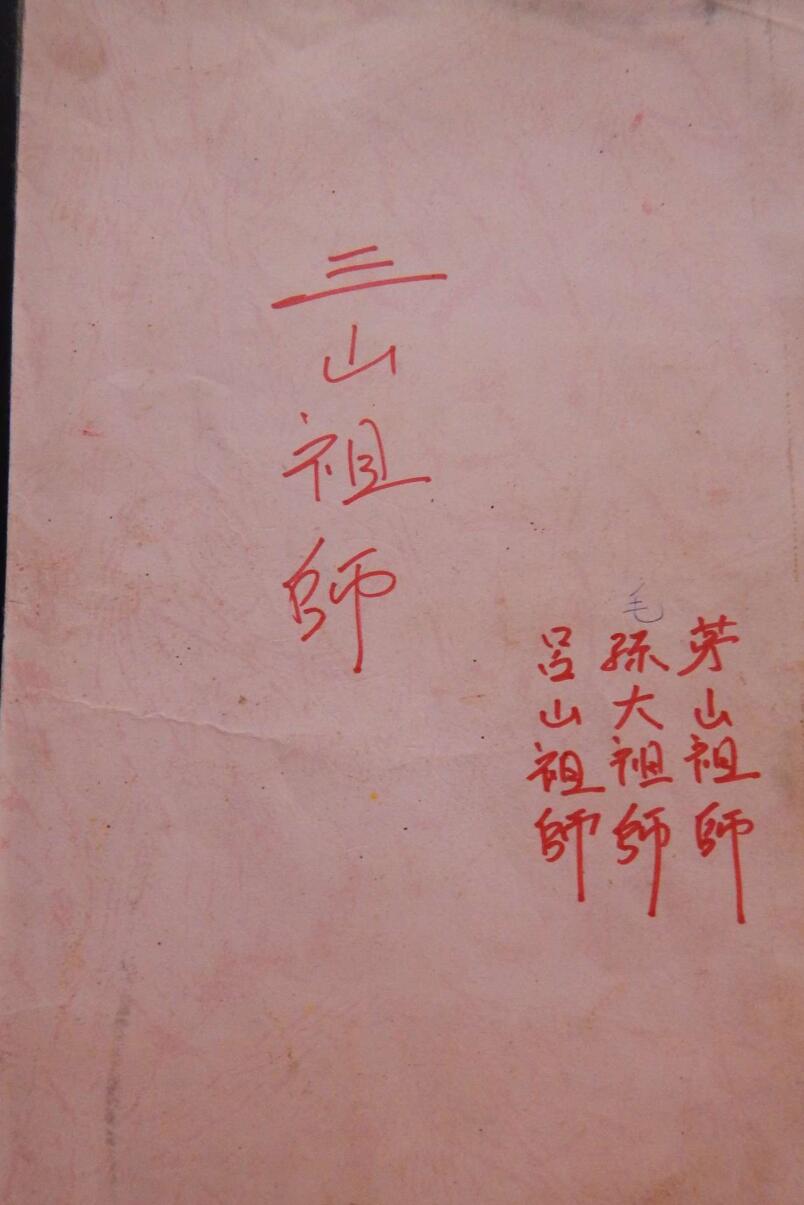 茅山祖師
毛
孫大祖師
呂山祖師
三山祖師